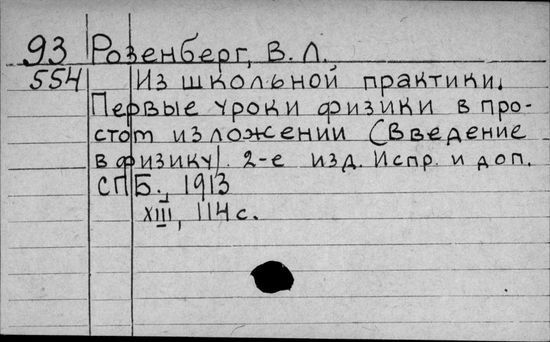 93 Розенберг, В. Л.
554 Из школьной практики.
Первые уроки физики в про-
стом изложении (Введение
в физику). 2-е изд. Испр. и доп.
СПБ., 1913
XIII, 114 с.